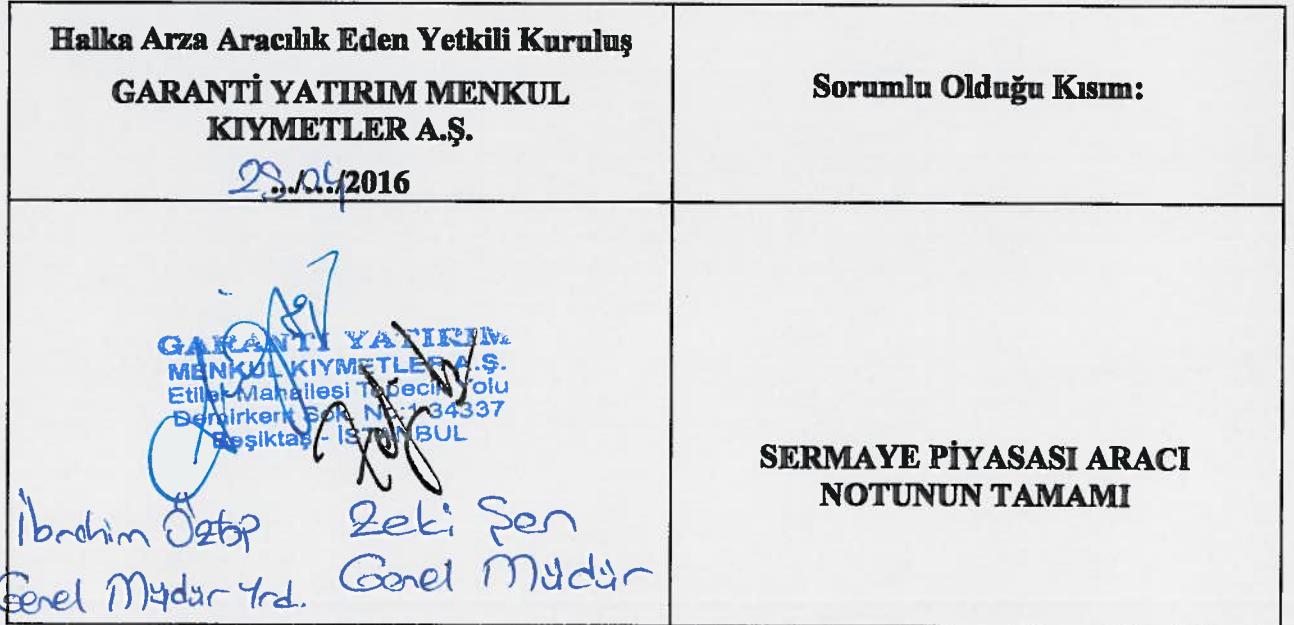 Halka Arza Aracılık Eden Yetkili Kuruluş
GARANTİ YATIRIM MENKUL
KIYMETLER A.Ş.
29.04/2016
Sorumlu Olduğu Kısım:
GARANTİ YATIRIM
MENKUL KIYMETLER A.Ş.
Etiler Mahallesi Tepecik Yolu
Demirkent Sok. No:1 34337
Beşiktaş - İSTANBUL
İbrahim Öztop
Genel Müdür Yrd.
Zeki Şen
Genel Müdür
SERMAYE PİYASASI ARACI
NOTUNUN TAMAMI